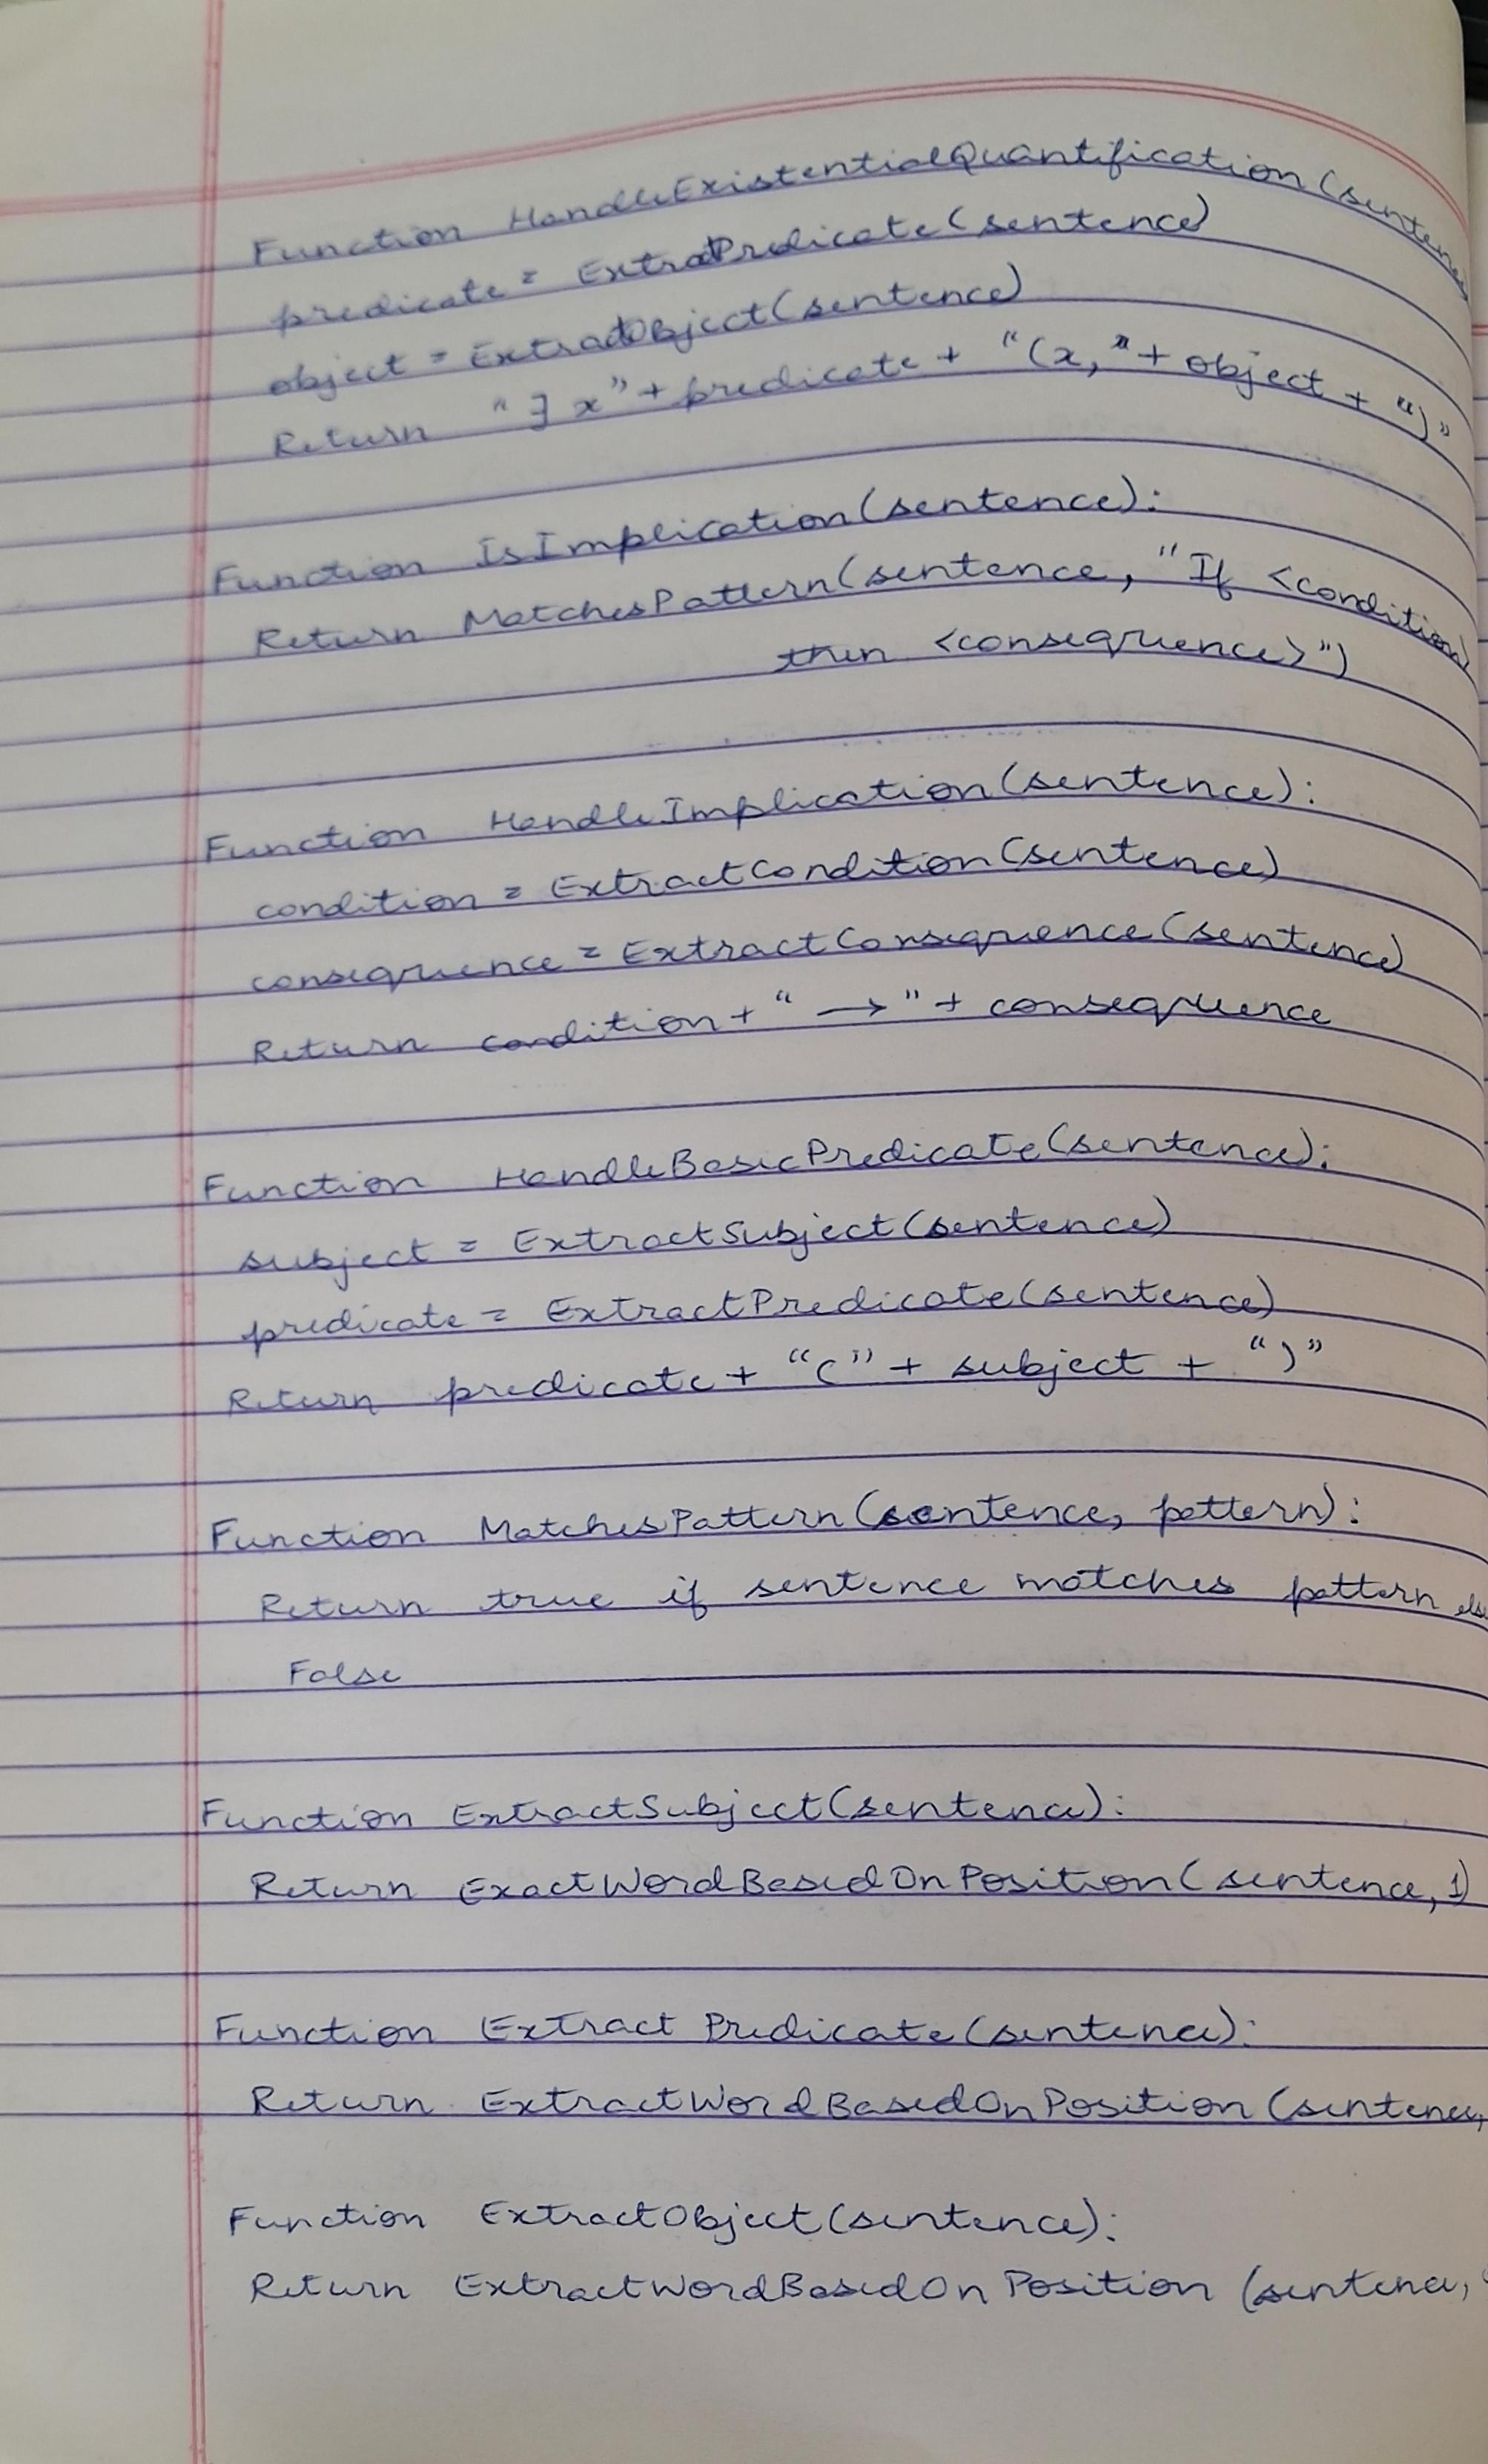 Function HandleExistentialQuantification(sentence
predicate = ExtractPredicate(sentence)
object = ExtractObject(sentence)
Return "∃ x" + predicate + "(x," + object + ")"
Function IsImplication(sentence):
Return MatchesPattern(sentence, "If <condition>
then <consequence>")
Function HandleImplication(sentence):
condition = ExtractCondition(sentence)
consequence = ExtractConsequence(sentence)
Return condition + " → " + consequence
Function HandleBasicPredicate(sentence):
subject = ExtractSubject(sentence)
predicate = ExtractPredicate(sentence)
Return predicate + "(" + subject + ")"
Function MatchesPattern(sentence, pattern):
Return true if sentence matches pattern else
False
Function ExtractSubject(sentence):
Return ExactWordBasedOnPosition(sentence, 1)
Function Extract Predicate(sentence):
Return ExtractWordBasedOnPosition(sentence,
Function ExtractObject(sentence):
Return ExtractWordBasedOnPosition(sentence,